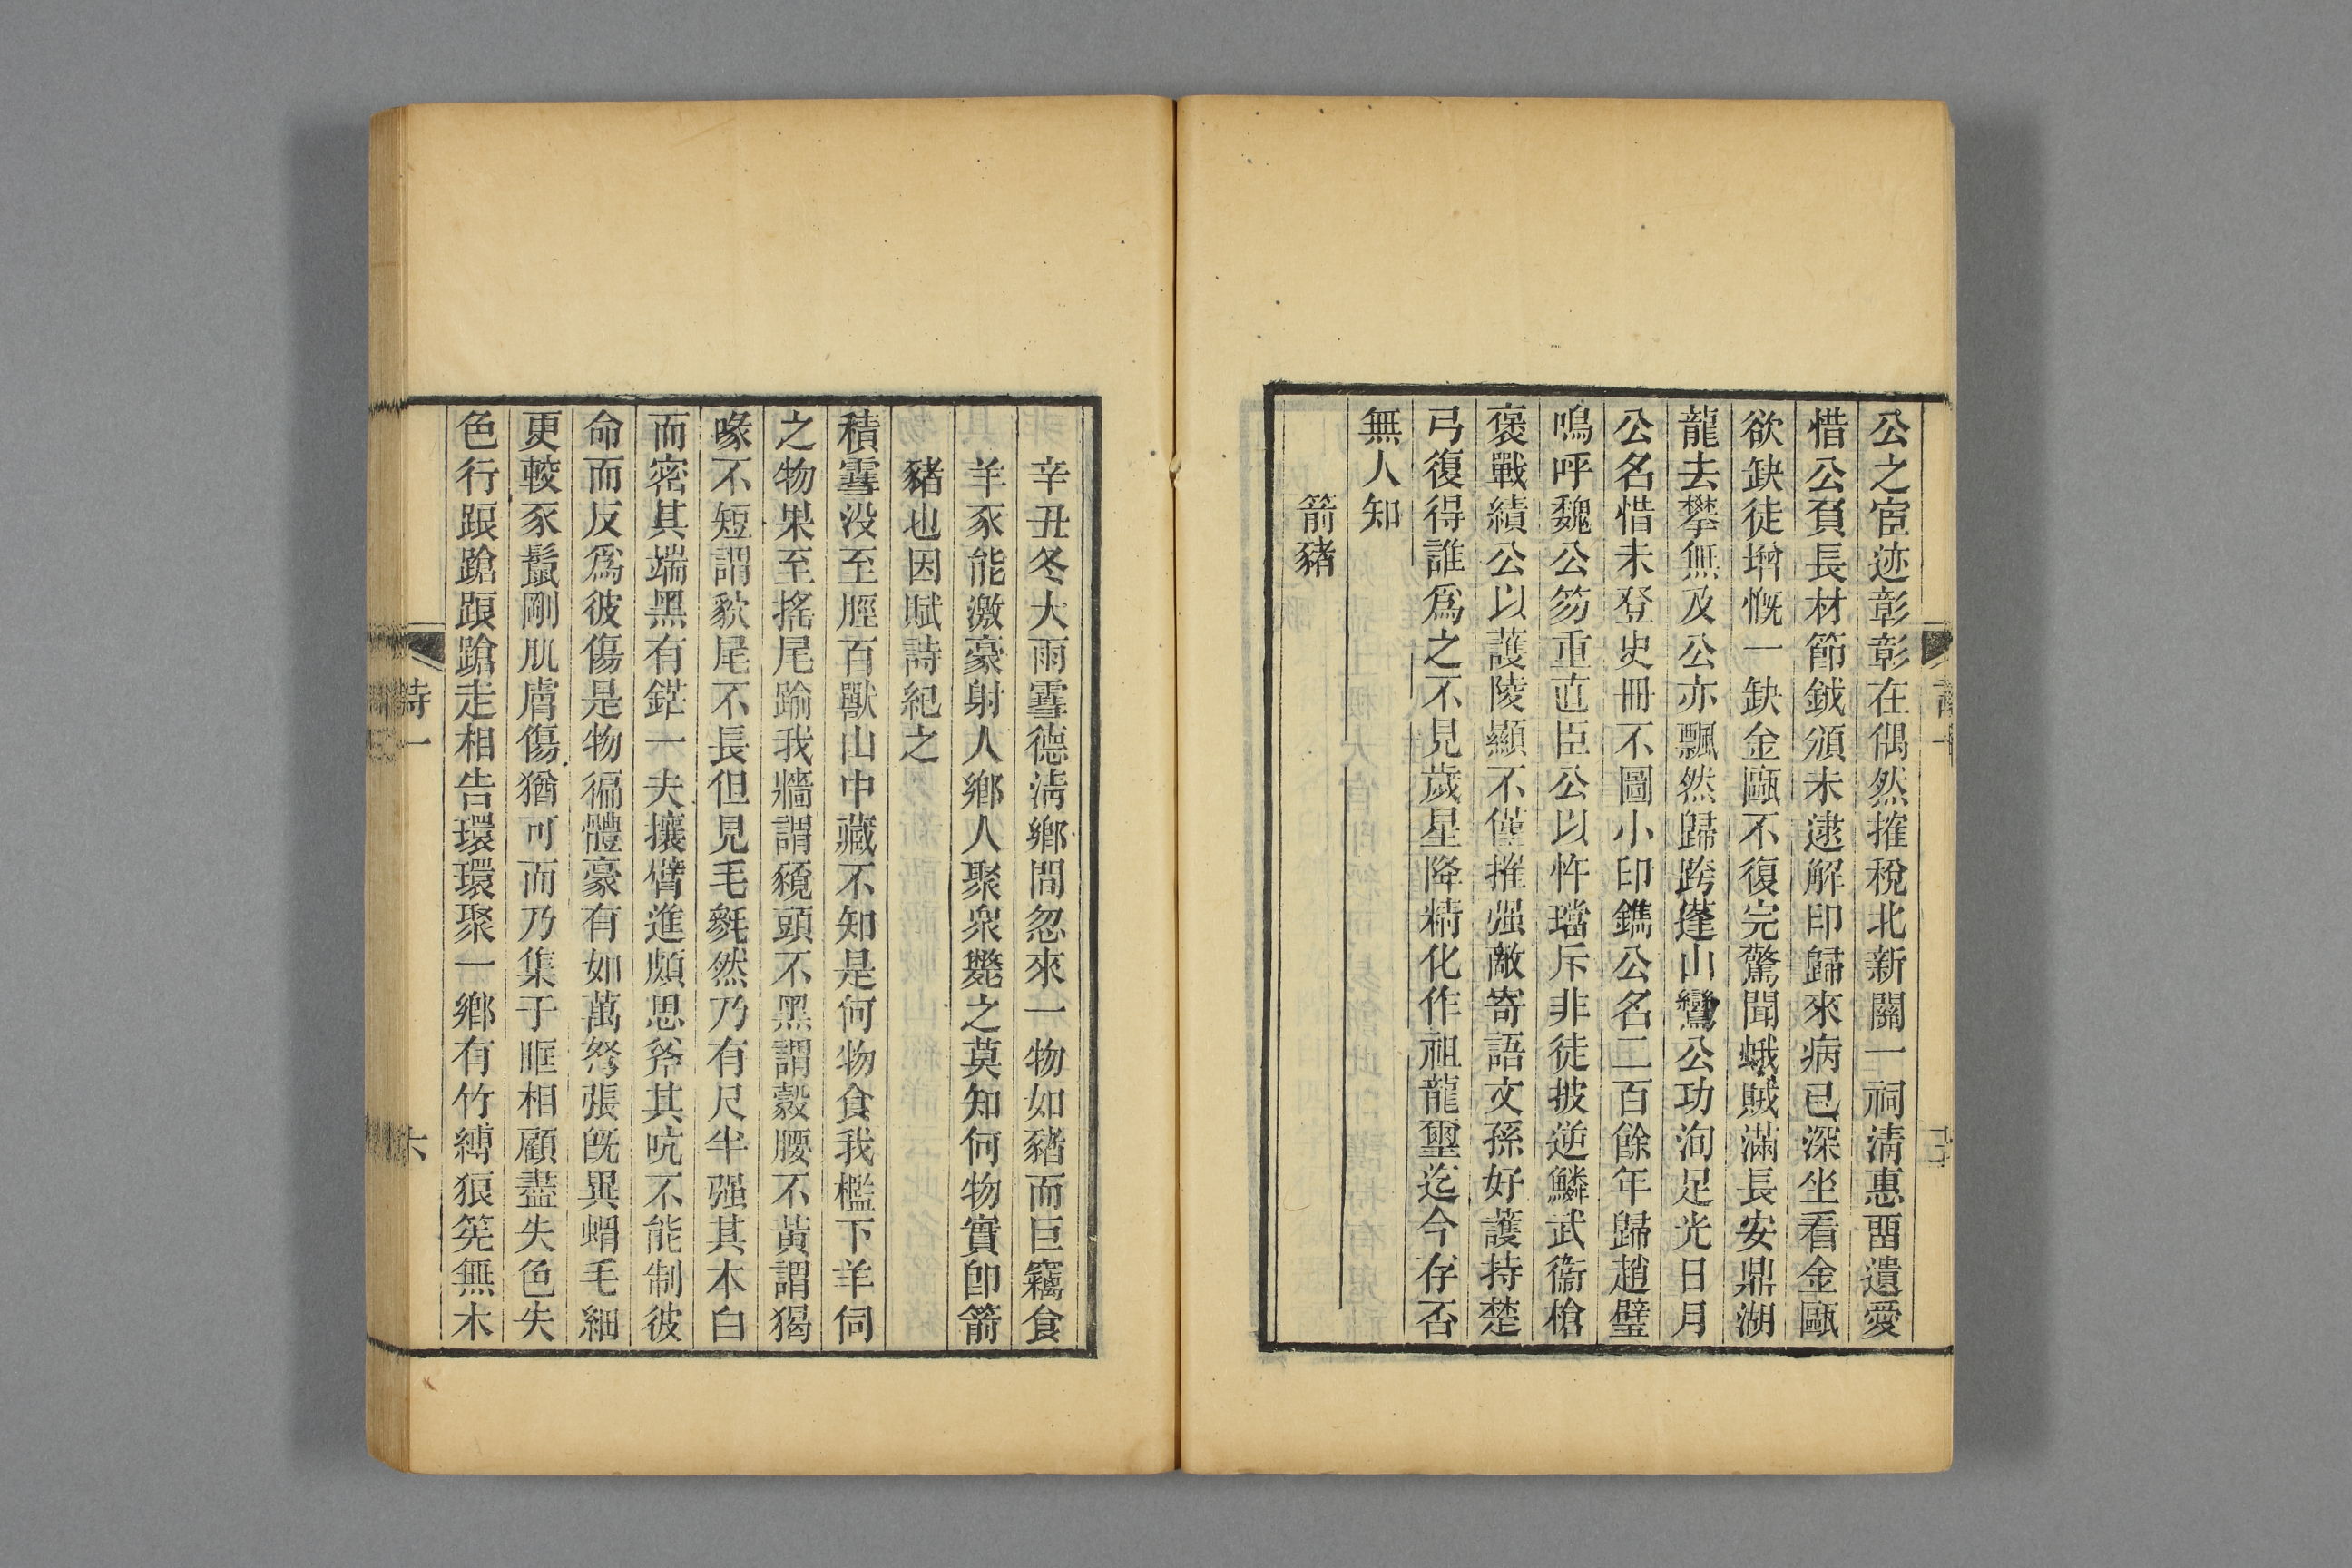 公之宦迹彰彰在偶然搉稅北新關一祠淸惠畱遺愛
惜公負長材節鉞頒未逮解印歸來病已深坐看金甌
欲缺徒增慨一缺金甌不復完驚聞蛾賊滿長安鼎湖
龍去攀無及公亦飄然歸跨蓬山鸞公功洵足光日月
公名惜未登史冊不圖小印鐫公名二百餘年歸趙璧
嗚呼魏公笏重直臣公以忤璫斥非徒披逆鱗武衞槍
褒戰績公以護陵顯不僅摧强敵寄語文孫好護持楚
弓復得誰爲之不見歲星降精化作祖龍璽迄今存否
無人知
箭豬
辛丑冬大雨䨮德淸鄉間忽來一物如豬而巨竊食
羊豕能激豪射人鄉人聚衆斃之莫知何物實卽箭
豬也因賦詩紀之
積䨮没至脛百獸山中藏不知是何物食我檻下羊伺
之物果至搖尾踰我牆謂貌頭不黑謂縠腰不黃謂猲
喙不短謂貁尾不長但見毛毿然乃有尺半强其本白
而密其端黑有鋩一夫攘臂進頗思斧其吭不能制彼
命而反爲彼傷是物徧體豪有如萬弩張旣異蝟毛細
更較豕鬣剛肌膚傷猶可而乃集于眶相顧盡失色失
色行踉蹌踉蹌走相告環環聚一鄉有竹縛狼筅無木
詩一
六